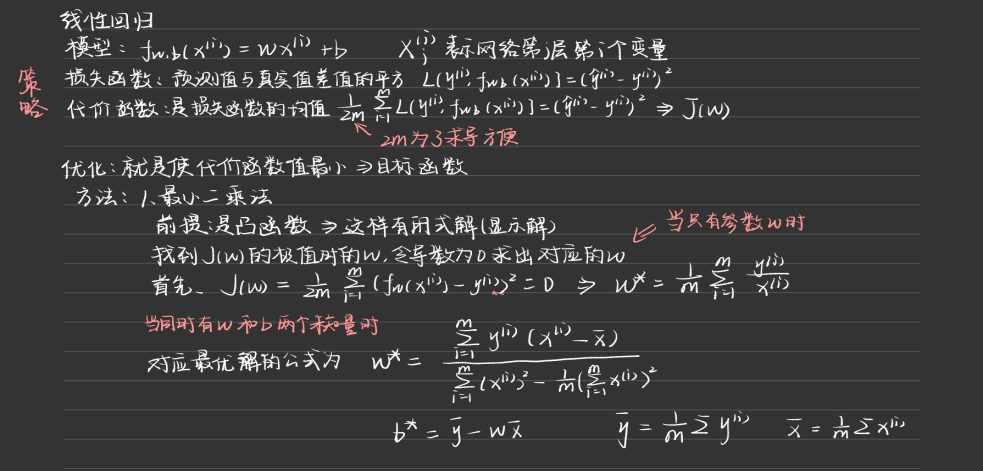 线性回归
模型: f_{w,b}(x^{(i)}) = wx^{(i)} + b   X_j^{(i)} 表示网络第j层第i个变量
策略
损失函数: 预测值与真实值差值的平方 L(y^{(i)}, f_{w,b}(x^{(i)})) = (ŷ^{(i)} - y^{(i)})^2
代价函数: 是损失函数的均值 \frac{1}{2m} \sum_{i=1}^{m} L(y^{(i)}, f_{w,b}(x^{(i)})) = (ŷ^{(i)} - y^{(i)})^2 ⇒ J(w)
2m为了求导方便
优化: 就是使代价函数值最小 ⇒ 目标函数
方法: 1、最小二乘法
前提: 是凸函数 ⇒ 这样有闭式解(显示解)
当只有参数w时
找到J(w)的极值时的w, 令导数为0求出对应的w
首先、J(w) = \frac{1}{2m} \sum_{i=1}^{m} (f_w(x^{(i)}) - y^{(i)})^2 = 0 ⇒ w* = \frac{1}{m} \sum_{i=1}^{m} \frac{y^{(i)}}{x^{(i)}}
当同时有w和b两个未知量时
对应最优解的公式为 w* = \frac{\sum_{i=1}^{m} y^{(i)} (x^{(i)} - \bar{x})}{\sum_{i=1}^{m} (x^{(i)})^2 - \frac{1}{m} (\sum_{i=1}^{m} x^{(i)})^2}
b* = \bar{y} - w\bar{x}   \bar{y} = \frac{1}{m} Σ y^{(i)}   \bar{x} = \frac{1}{m} Σ x^{(i)}